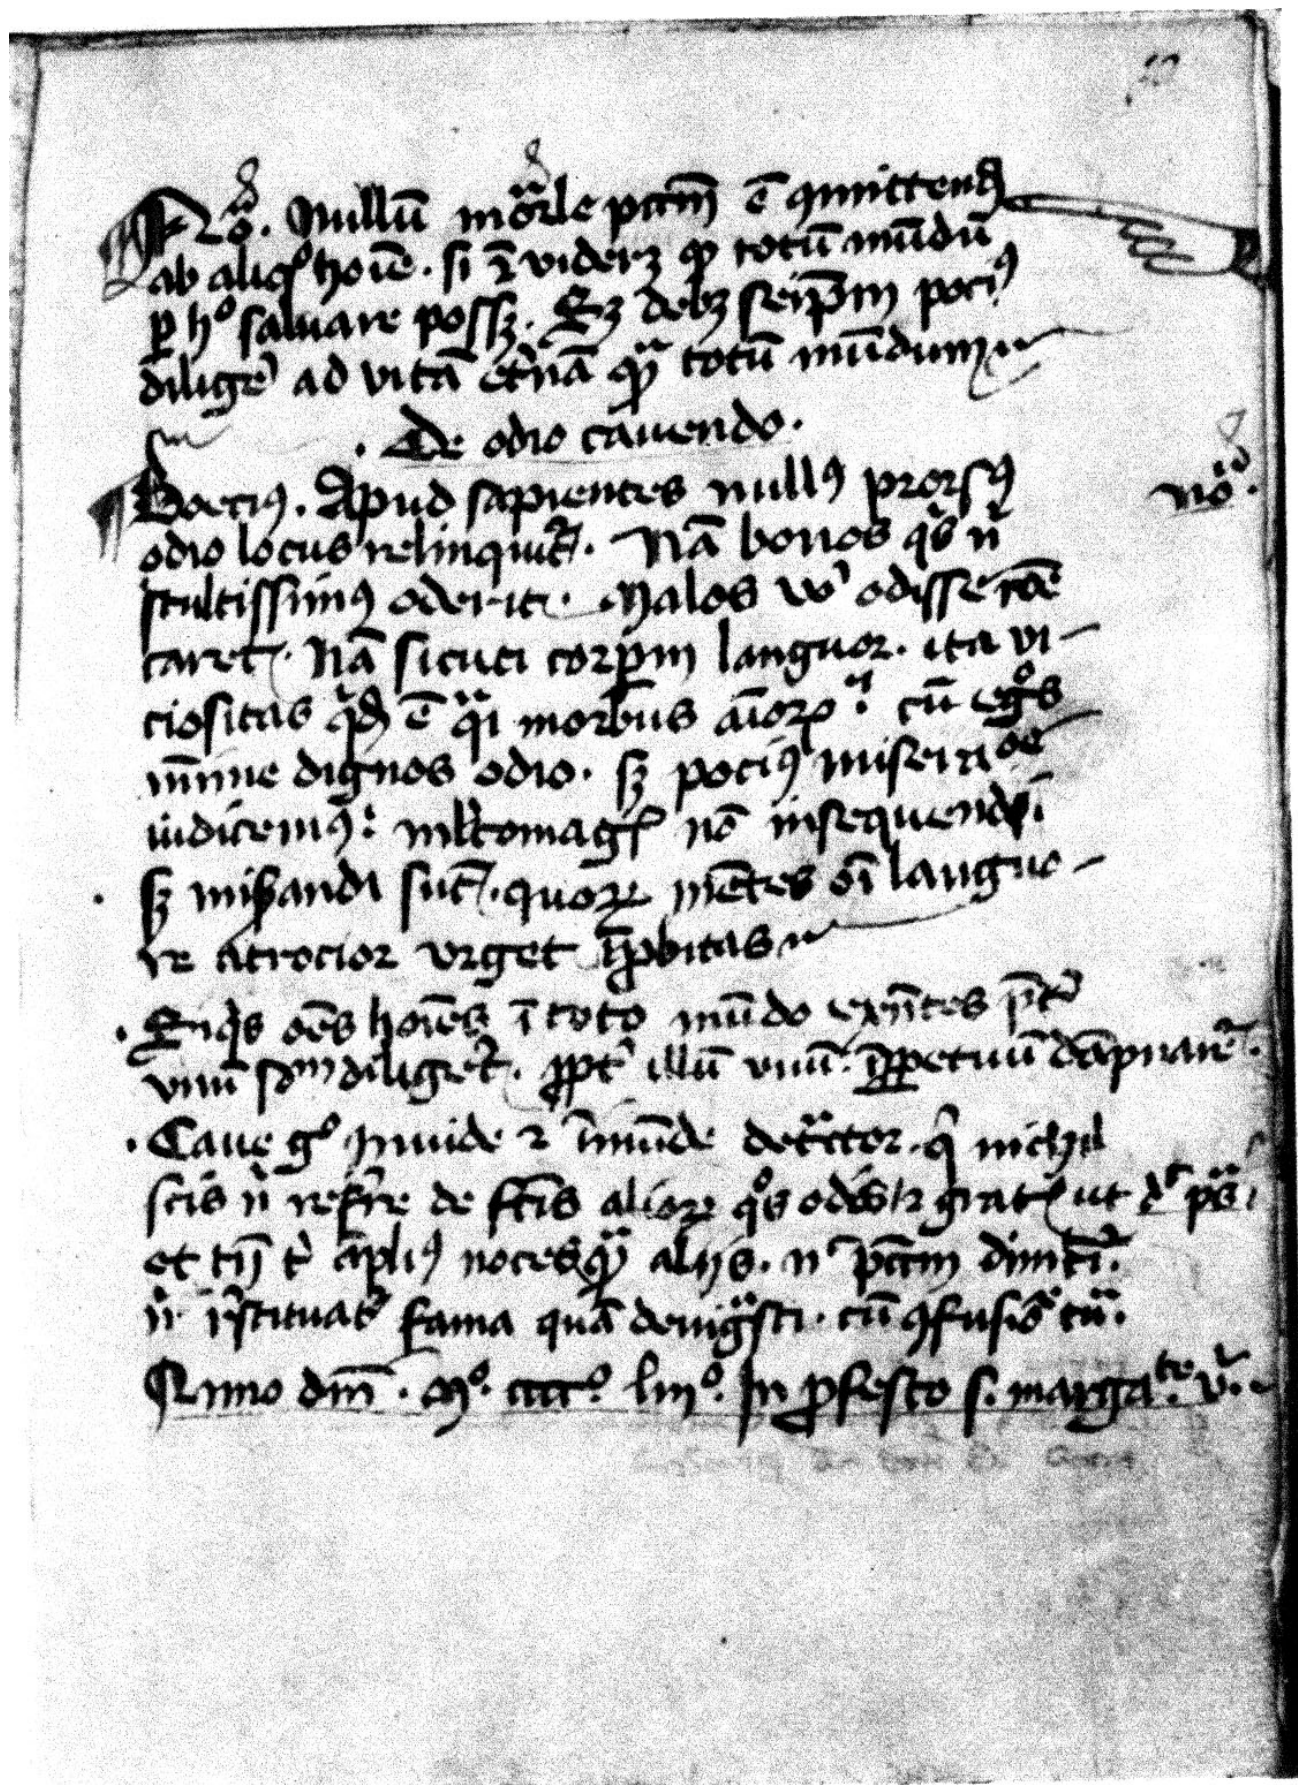 No. Nullū mōrle pctm̄ ē ꝯmittend
ab aliq° hoīe. si ī videꝫ ꝙ totū mūdū
ꝑ h° saluare possꝫ. Qꝫ debꝫ seip̄m potiꝰ
diligē ad vitā et̄nā qͣ totū mūdum
. De odio cauendo.
Boetiꝰ. Apud sapientes nullꝰ prorsꝰ
nō.
odio locus relinquit᷑. Nā bonos qͥs nͥ
stultissimꝰ oderit. Malos vͦ odisse rōe
caret. Nā sicuti corpm̄ languor. ita vi-
ciositas qͥd ē qͣi morbus aīoꝝ. cū egͦs
mīme dignos odio. sꝫ potiꝰ miseratōe
iudicemꝰ. ml̄tomagꝭ nō insequendi
sꝫ misandi sūt. quoꝝ mētes oī languo-
re atrocior vrget īprobitas
. Qͥ oēs hoīes ī toto mūdo exn̄tes p̄t
vnū diligeret. ꝓpt illū vnū īꝑpetuū dāpnaret᷑.
. Caue g° Inuide ⁊ īmūde detͣctor. qͥ nichil
scis nͥ referre de fc̄is alioꝝ qͦs odis gratis ut dͭ pͣs.
et tn̄ tͥ āpliꝰ noces qͣ alijs. nͦ pctm̄ dimittit᷑.
nͥ rͤstituat᷑ fama quā denigͣsti. cū ꝯfusiōe tuͣ.
Anno dm̄. Mͦ. ccccͦ. liijͦ. In ꝓfesto s. margarͭᵉ. vͥ.